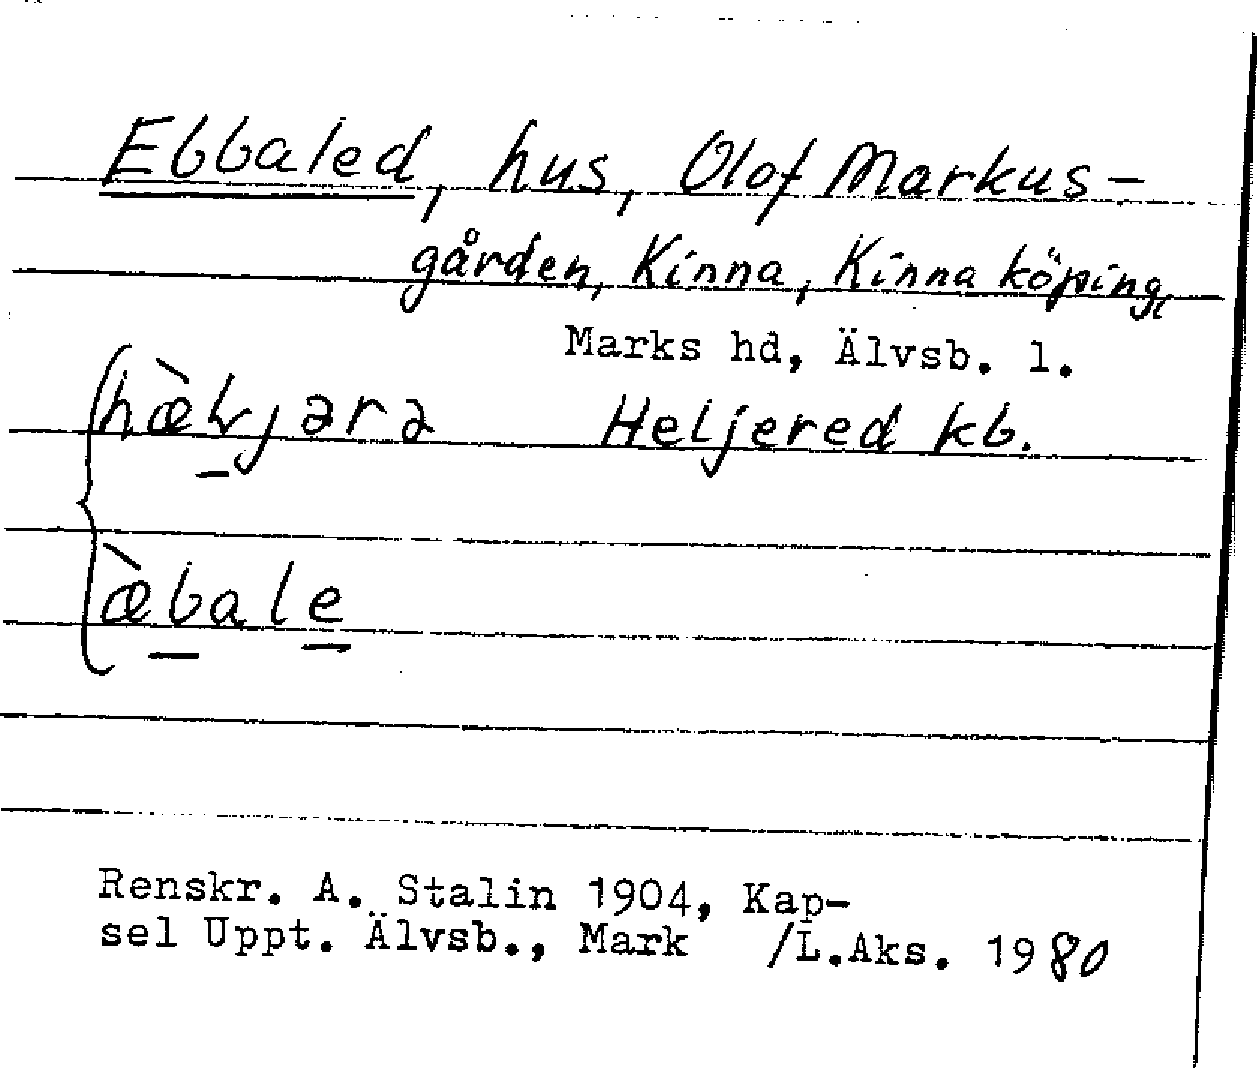 Ebbaled, hus, Olof Markus-
gården, Kinna, Kinna köping,
Marks hd, Älvsb. l.
Heljered kb.
æ̀bale
Renskr. A. Stalin 1904, Kap-
sel Uppt. Älvsb., Mark /L.Aks. 1980